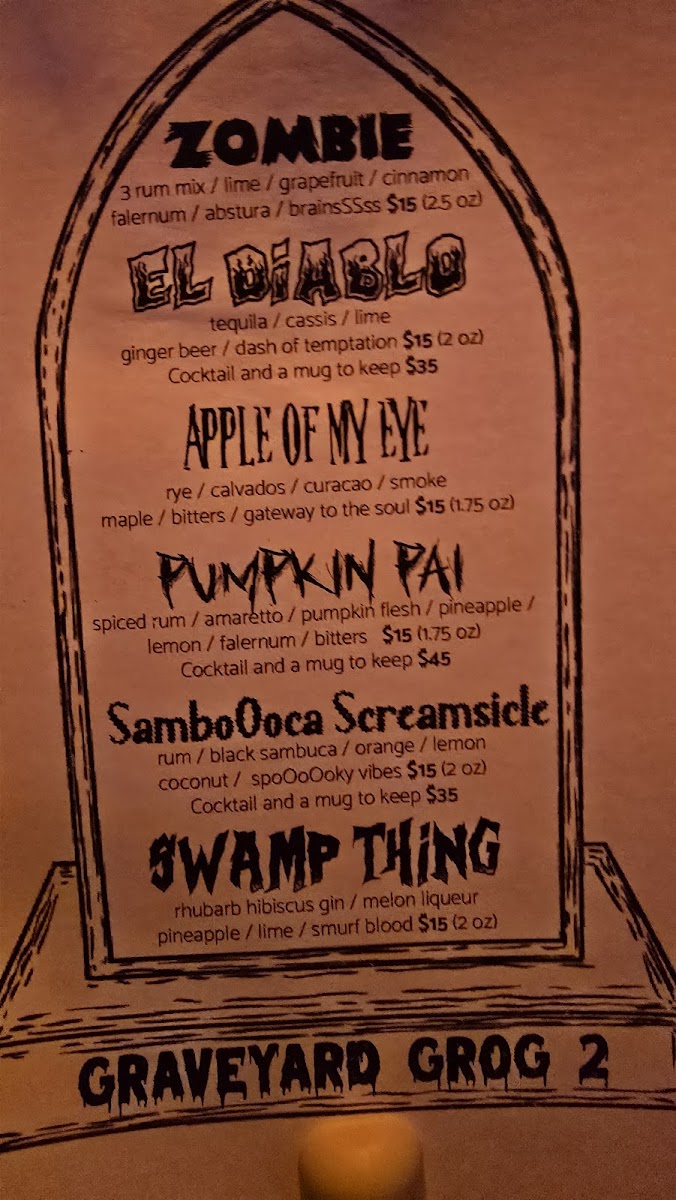 ZOMBIE
3 rum mix / lime / grapefruit / cinnamon
falernum / abstura / brainsSSss $15 (2.5 oz)
EL DiABLO
tequila / cassis / lime
ginger beer / dash of temptation $15 (2 oz)
Cocktail and a mug to keep $35
APPLE OF MY EYE
rye / calvados / curacao / smoke
maple / bitters / gateway to the soul $15 (1.75 oz)
PUMPKIN PAI
spiced rum / amaretto / pumpkin flesh / pineapple /
lemon / falernum / bitters $15 (1.75 oz)
Cocktail and a mug to keep $45
SamboOoca Screamsicle
rum / black sambuca / orange / lemon
coconut / spoOoOoky vibes $15 (2 oz)
Cocktail and a mug to keep $35
SWAMP THiNG
rhubarb hibiscus gin / melon liqueur
pineapple / lime / smurf blood $15 (2 oz)
GRAVEYARD GROG 2